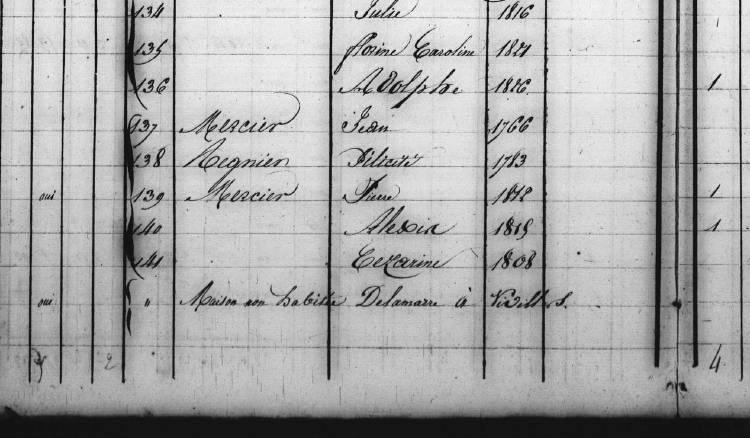 134 Julie 1816
135 florine Caroline 1821
136 Adolphe 1826 1
137 Mercier Jean 1766
138 Regnier Félicité 1783
oui 139 Mercier Pierre 1812 1
140 Alexis 1815 1
141 Cezarine 1808
oui " Maison non habitée Delamarre à
2 4